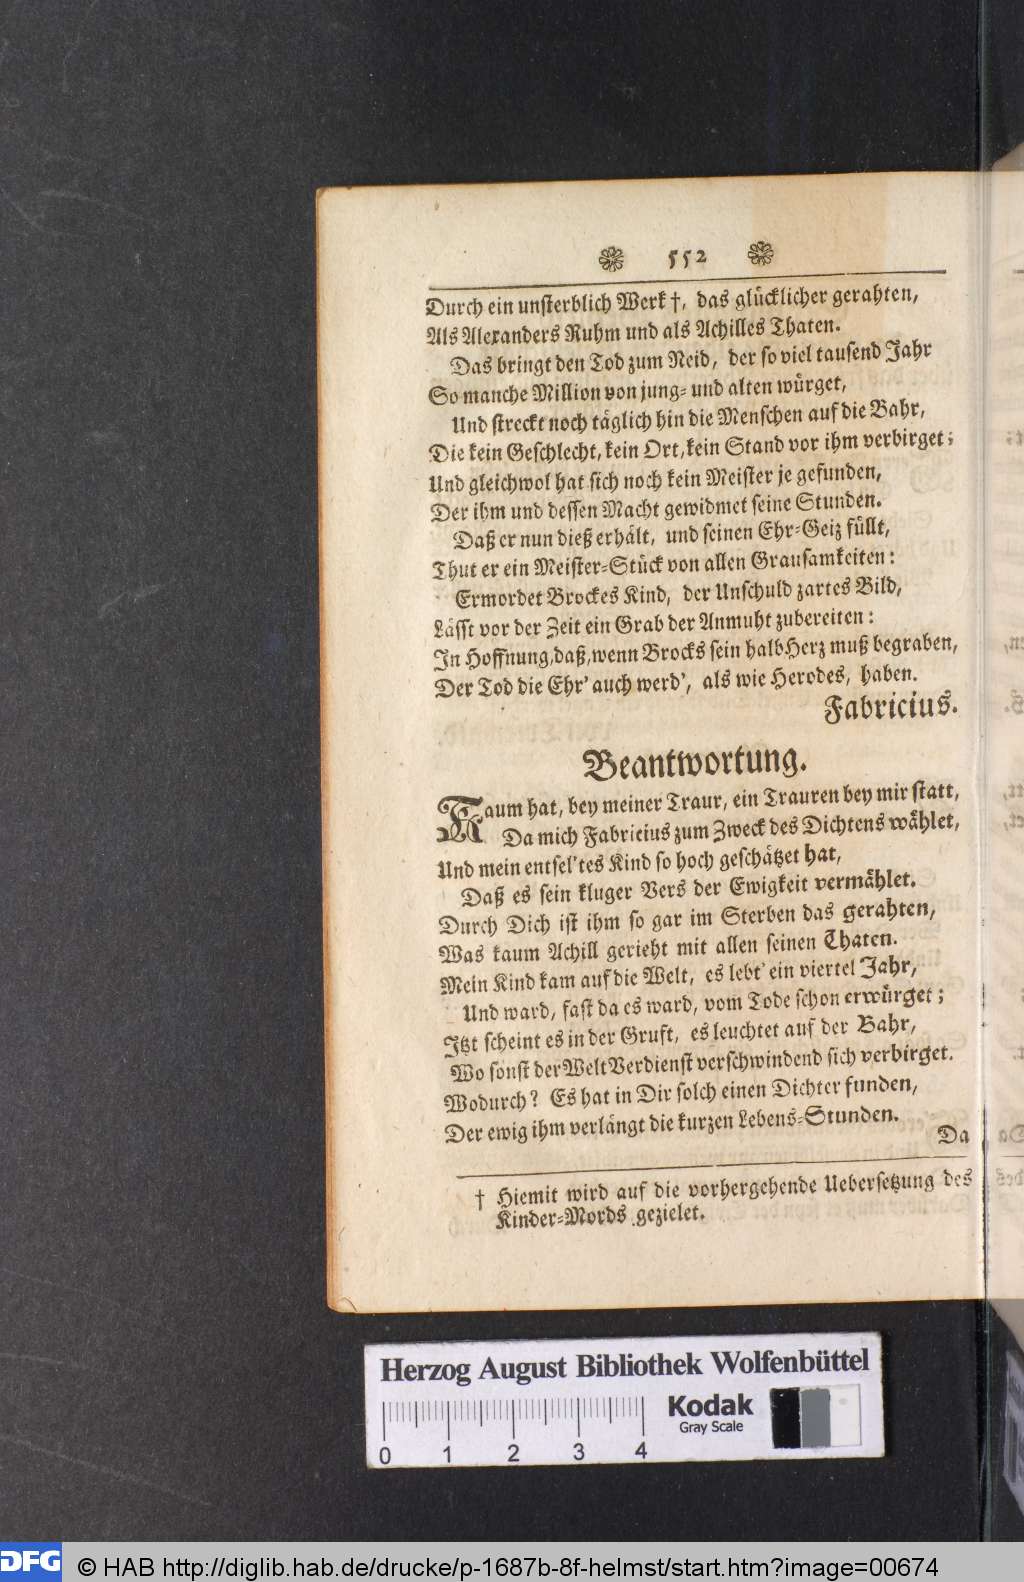 552
Durch ein unsterblich Werk †, das glücklicher gerahten,
Als Alexanders Ruhm und als Achilles Thaten.
Das bringt den Tod zum Neid, der so viel tausend Jahr
So manche Million von jung- und alten würget,
Und streckt noch täglich hin die Menschen auf die Bahr,
Die kein Geschlecht, kein Ort, kein Stand vor ihm verbirget;
Und gleichwol hat sich noch kein Meister je gefunden,
Der ihm und dessen Macht gewidmet seine Stunden.
Daß er nun dieß erhält, und seinen Ehr-Geiz füllt,
Thut er ein Meister-Stück von allen Grausamkeiten:
Ermordet Brockes Kind, der Unschuld zartes Bild,
Lässt vor der Zeit ein Grab der Anmuht zubereiten:
In Hoffnung, daß, wenn Brocks sein halb Herz muß begraben,
Der Tod die Ehr' auch werd', als wie Herodes, haben.
Fabricius.
Beantwortung.
Kaum hat, bey meiner Traur, ein Trauren bey mir statt,
Da mich Fabricius zum Zweck des Dichtens wählet,
Und mein entsel'tes Kind so hoch geschätzet hat,
Daß es sein kluger Vers der Ewigkeit vermählet.
Durch Dich ist ihm so gar im Sterben das gerahten,
Was kaum Achill gerieht mit allen seinen Thaten.
Mein Kind kam auf die Welt, es lebt' ein viertel Jahr,
Und ward, fast da es ward, vom Tode schon erwürget;
Itzt scheint es in der Gruft, es leuchtet auf der Bahr,
Wo sonst der Welt Verdienst verschwindend sich verbirget.
Wodurch? Es hat in Dir solch einen Dichter funden,
Der ewig ihm verlängt die kurzen Lebens-Stunden.
Da
† Hiemit wird auf die vorhergehende Uebersetzung des
Kinder-Mords gezielet.
Herzog August Bibliothek Wolfenbüttel
Kodak
Gray Scale
0 1 2 3 4
DFG © HAB http://diglib.hab.de/drucke/p-1687b-8f-helmst/start.htm?image=00674